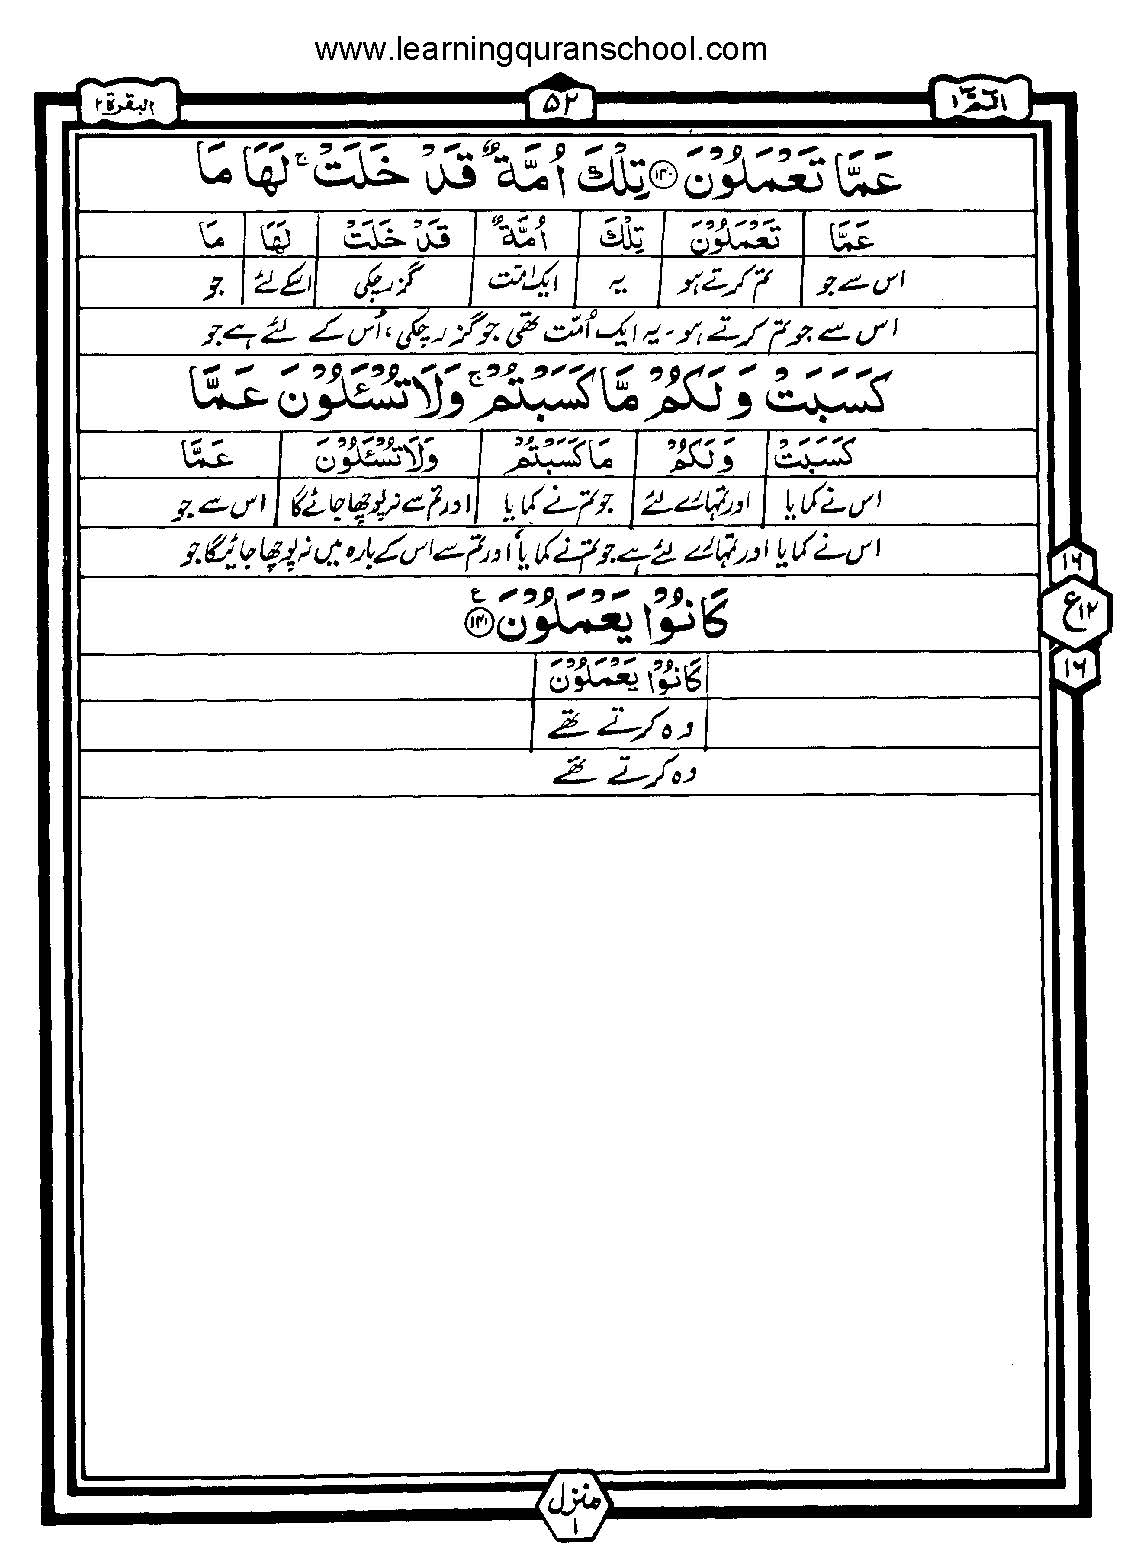 www.learningquranschool.com
الٓمّٓ ١ ۵۲ البقرة ٢
عَمَّا تَعْمَلُوْنَ ﴿۱۴۰﴾ تِلْكَ اُمَّةٌ قَدْ خَلَتْ ۚ لَهَا مَا
عَمَّا تَعْمَلُوْنَ تِلْكَ اُمَّةٌ قَدْ خَلَتْ لَهَا مَا
اس سے جو تم کرتے ہو یہ ایک امّت گزر چکی اسکے لئے جو
اس سے جو تم کرتے ہو۔ یہ ایک اُمّت تھی جو گزر چکی، اُس کے لئے ہے جو
كَسَبَتْ وَلَكُمْ مَّا كَسَبْتُمْ ۚ وَلَا تُسْئَلُوْنَ عَمَّا
كَسَبَتْ وَلَكُمْ مَا كَسَبْتُمْ وَلَا تُسْئَلُوْنَ عَمَّا
اس نے کمایا اور تمہارے لئے جو تم نے کمایا اور تم سے نہ پوچھا جائے گا اس سے جو
اس نے کمایا اور تمہارے لئے ہے جو تم نے کمایا اور تم سے اس کے بارہ میں نہ پوچھا جائیگا جو
كَانُوْا يَعْمَلُوْنَ ﴿۱۴۱﴾ ع
كَانُوْا يَعْمَلُوْنَ
وہ کرتے تھے
وہ کرتے تھے
١٦
ع ١٢
١٦
منزل
١